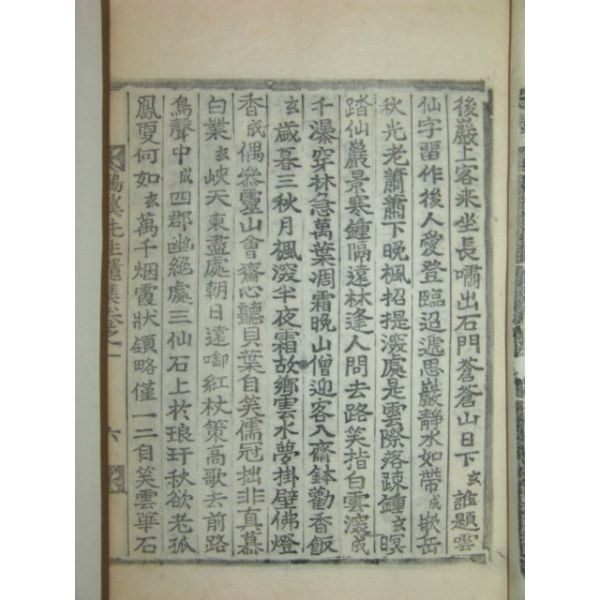 後巖上客来坐長嘯出石門蒼蒼山日下玄誰題雲
仙字留作後人愛登臨迢遞思巖靜水如帶成嵌岳
秋光老蕭蕭下晩楓招提深處是雲際落疎鍾玄暝
踏仙巖景寒鍾隔遠林逢人問去路笑指白雲深成
千瀑穿林急萬葉凋霜晩山僧迎客入齋鉢勸香飯
玄歲暮三秋月楓深半夜霜故鄉雲水夢掛壁佛燈
香成偶參靈山會齋心聽貝葉自笑儒冠拙非真慕
白業玄峽天東盡處朝日遠啣紅杖策高歌去前路
鳥聲中成四郡幽絶處三仙石上於琅玕秋欲老孤
鳳夏何如玄萬千烟霞狀領略僅一二自笑雲華石
溪先生遺集卷之一 六